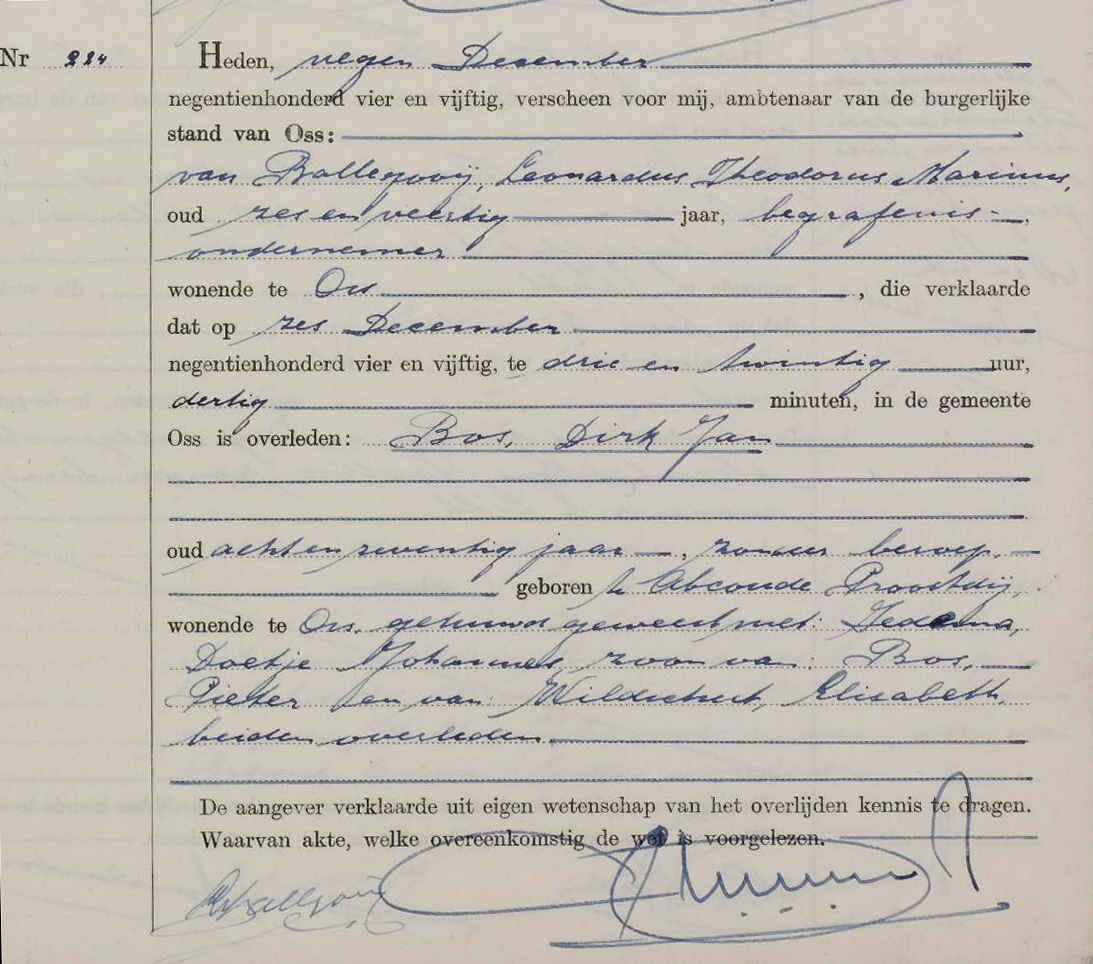 Nr 224
Heden, negen December
negentienhonderd vier en vijftig, verscheen voor mij, ambtenaar van de burgerlijke
stand van Oss:
van Ballegooij, Leonardus Theodorus Marinus,
oud zes en veertig jaar, begrafenis-,
ondernemer
wonende te Oss, die verklaarde
dat op zes December
negentienhonderd vier en vijftig, te drie en twintig uur,
dertig minuten, in de gemeente
Oss is overleden: Bos, Dirk Jan
oud acht en zeventig jaar, zonder beroep,
geboren te Abcoude Proostdij,
wonende te Oss, gehuwd geweest met: Jedema,
Doetje Johannes, zoon van: Bos,
Pieter en van: Wildschut, Elisabeth,
beiden overleden.
De aangever verklaarde uit eigen wetenschap van het overlijden kennis te dragen.
Waarvan akte, welke overeenkomstig de wet is voorgelezen.